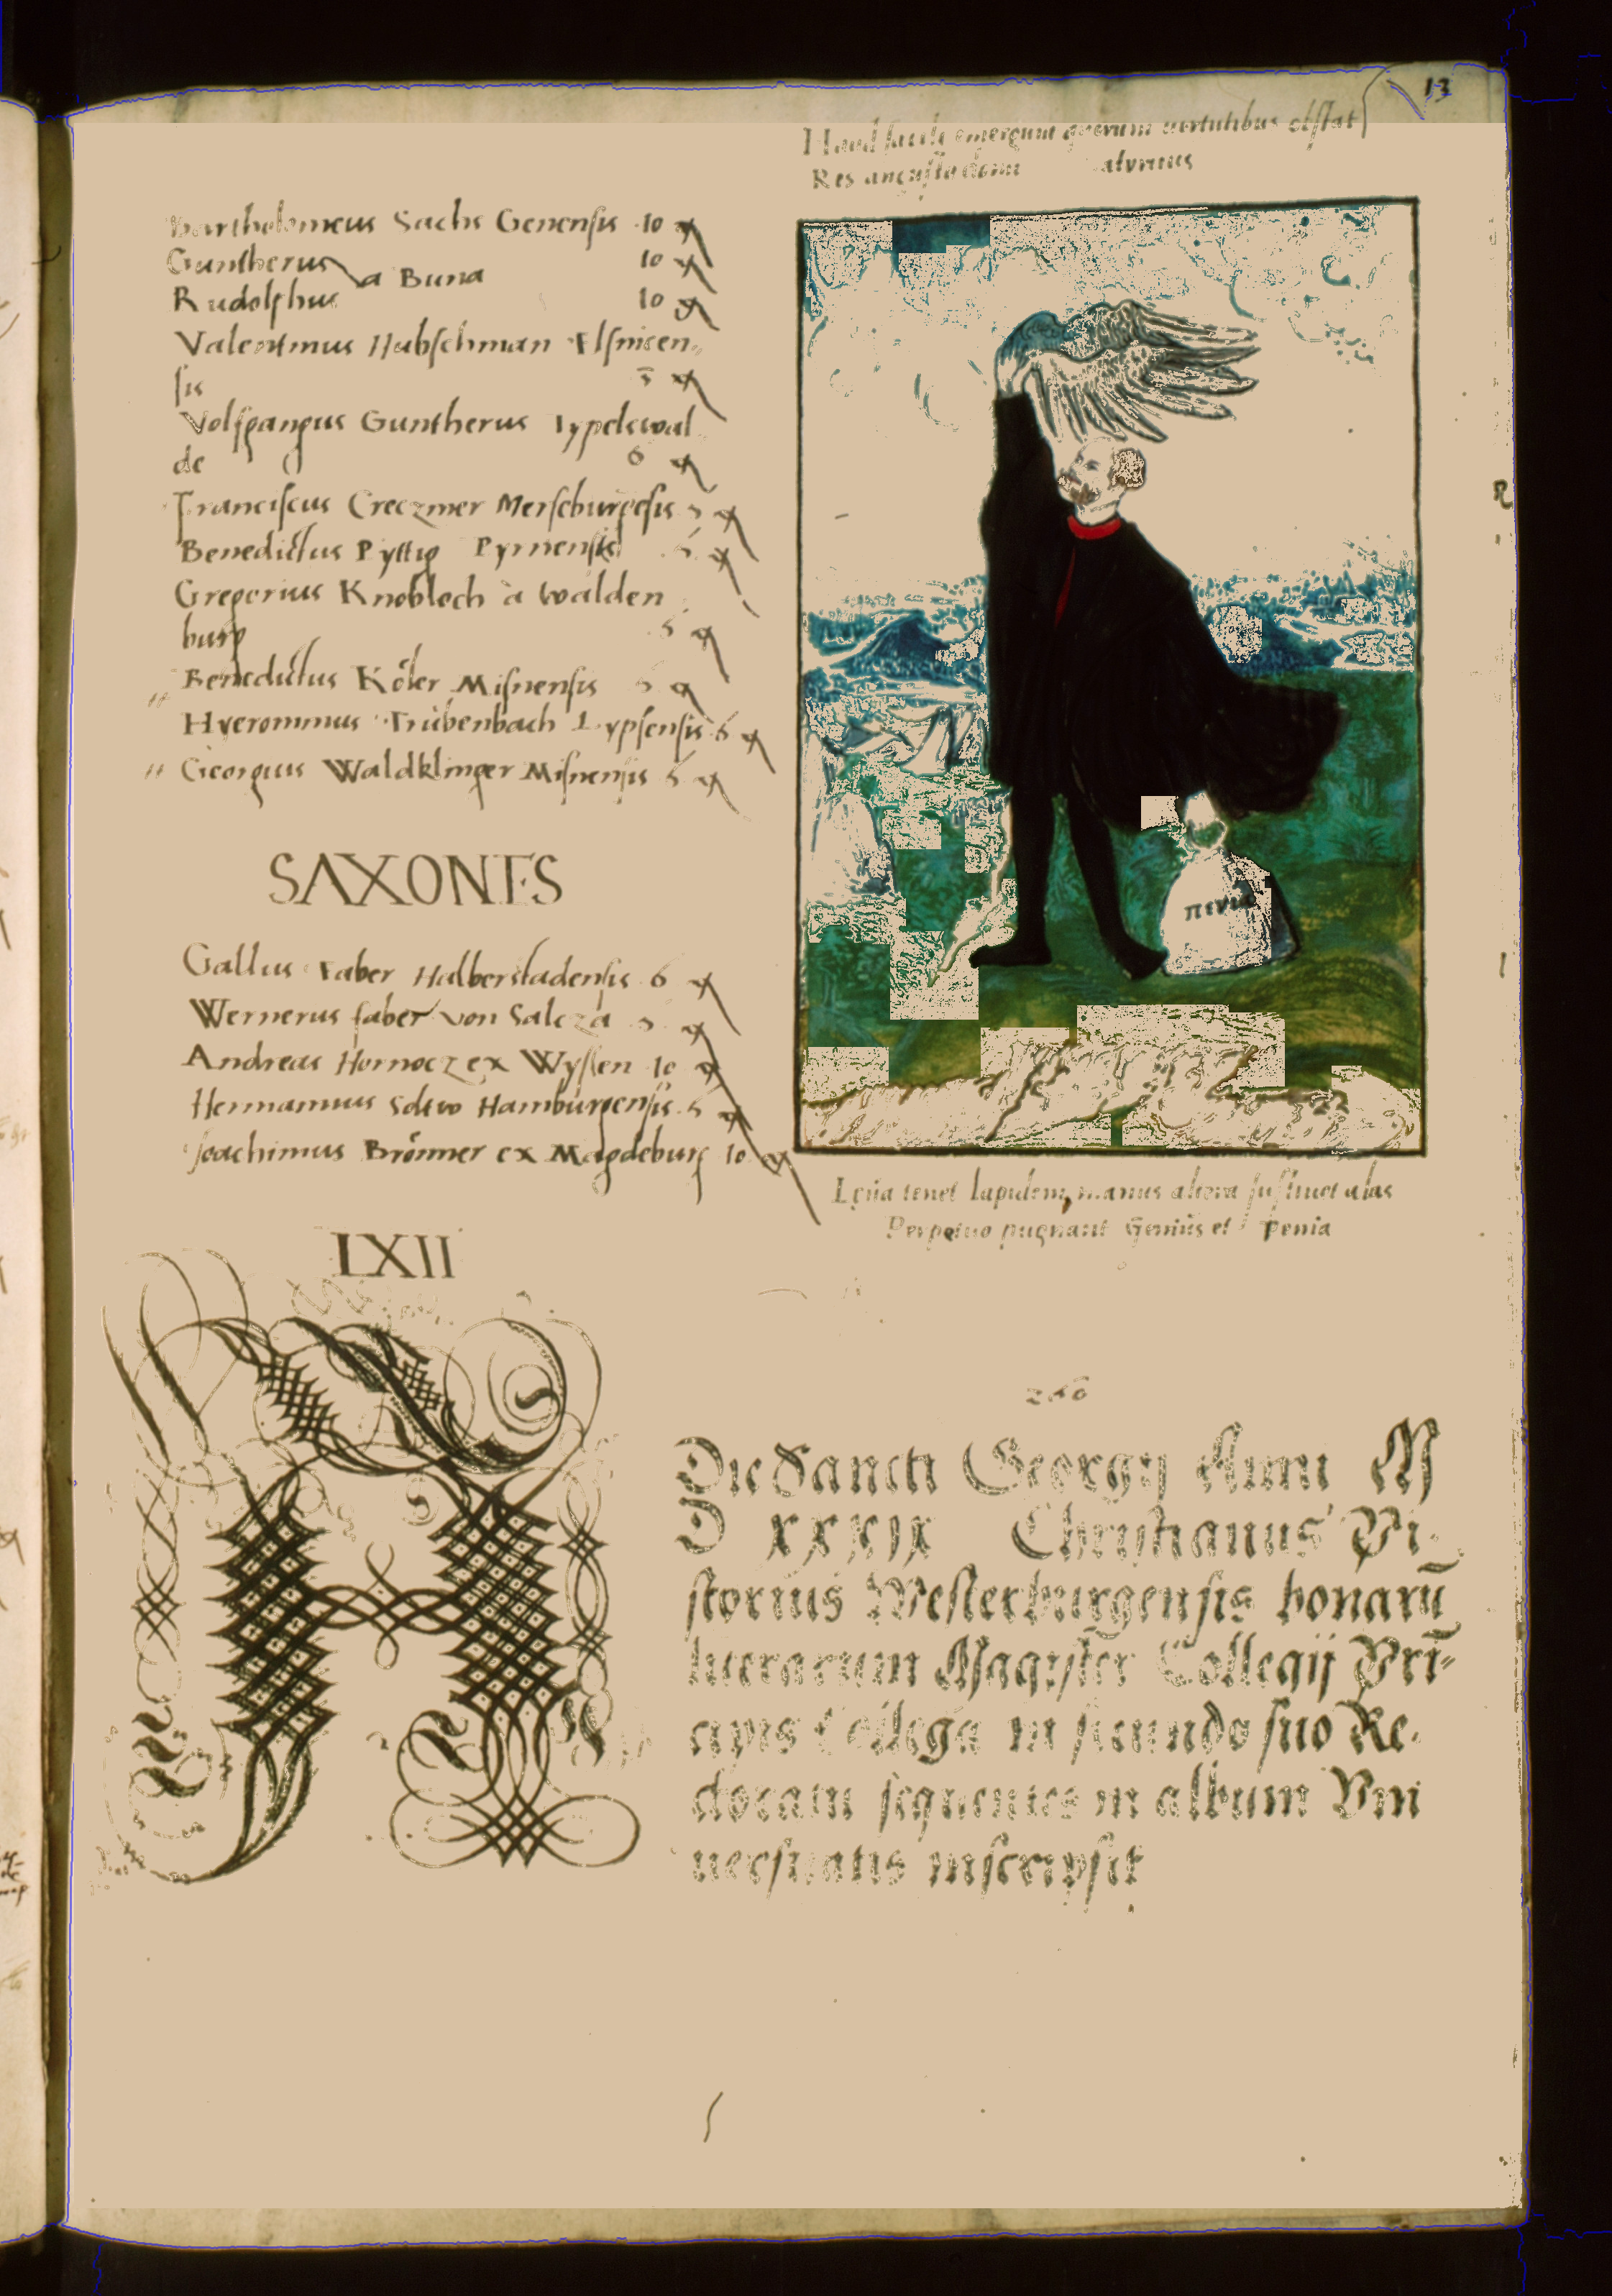 13
Haud facile emergunt quorum virtutibus obstat
Res angusta domi
Bartholomeus Sachs Genensis 10
Guntherus
a Buna 10
Rudolphus 10
Valentinus Hubschman Elsnicen
sis 5
Volfgangus Guntherus Lypelswal
de 6
Franciscus Creczmer Merseburgesis 5
Benedictus Pyttig Pyrnensis
Gregorius Knobloch à Walden
burg 5
Benedictus Köler Misnensis 5
Hyeronimus Trübenbach Lypsensis 6
Georgius Waldklinger Misnensis 6
SAXONES
Gallus Faber Halberstadensis 6
Wernerus faber von Salcza
Andreas Hornocz ex Wyssen 10
Hermannus Hamburgensis 5
Joachimus Brömer ex Magdeburg 10
πενία
tenet lapidem, manus altera sustinet alas
Perpetuo pugnant Genius et penia
LXII
Die Sancti Georgij Anni M
D XXXIX Christianus Pi
storius Westerburgensis bonarū
literarum Magister Collegij Pri
cipis Collega in secundo suo Re
ctoratu sequentes in album Vni
uersitatis inscripsit